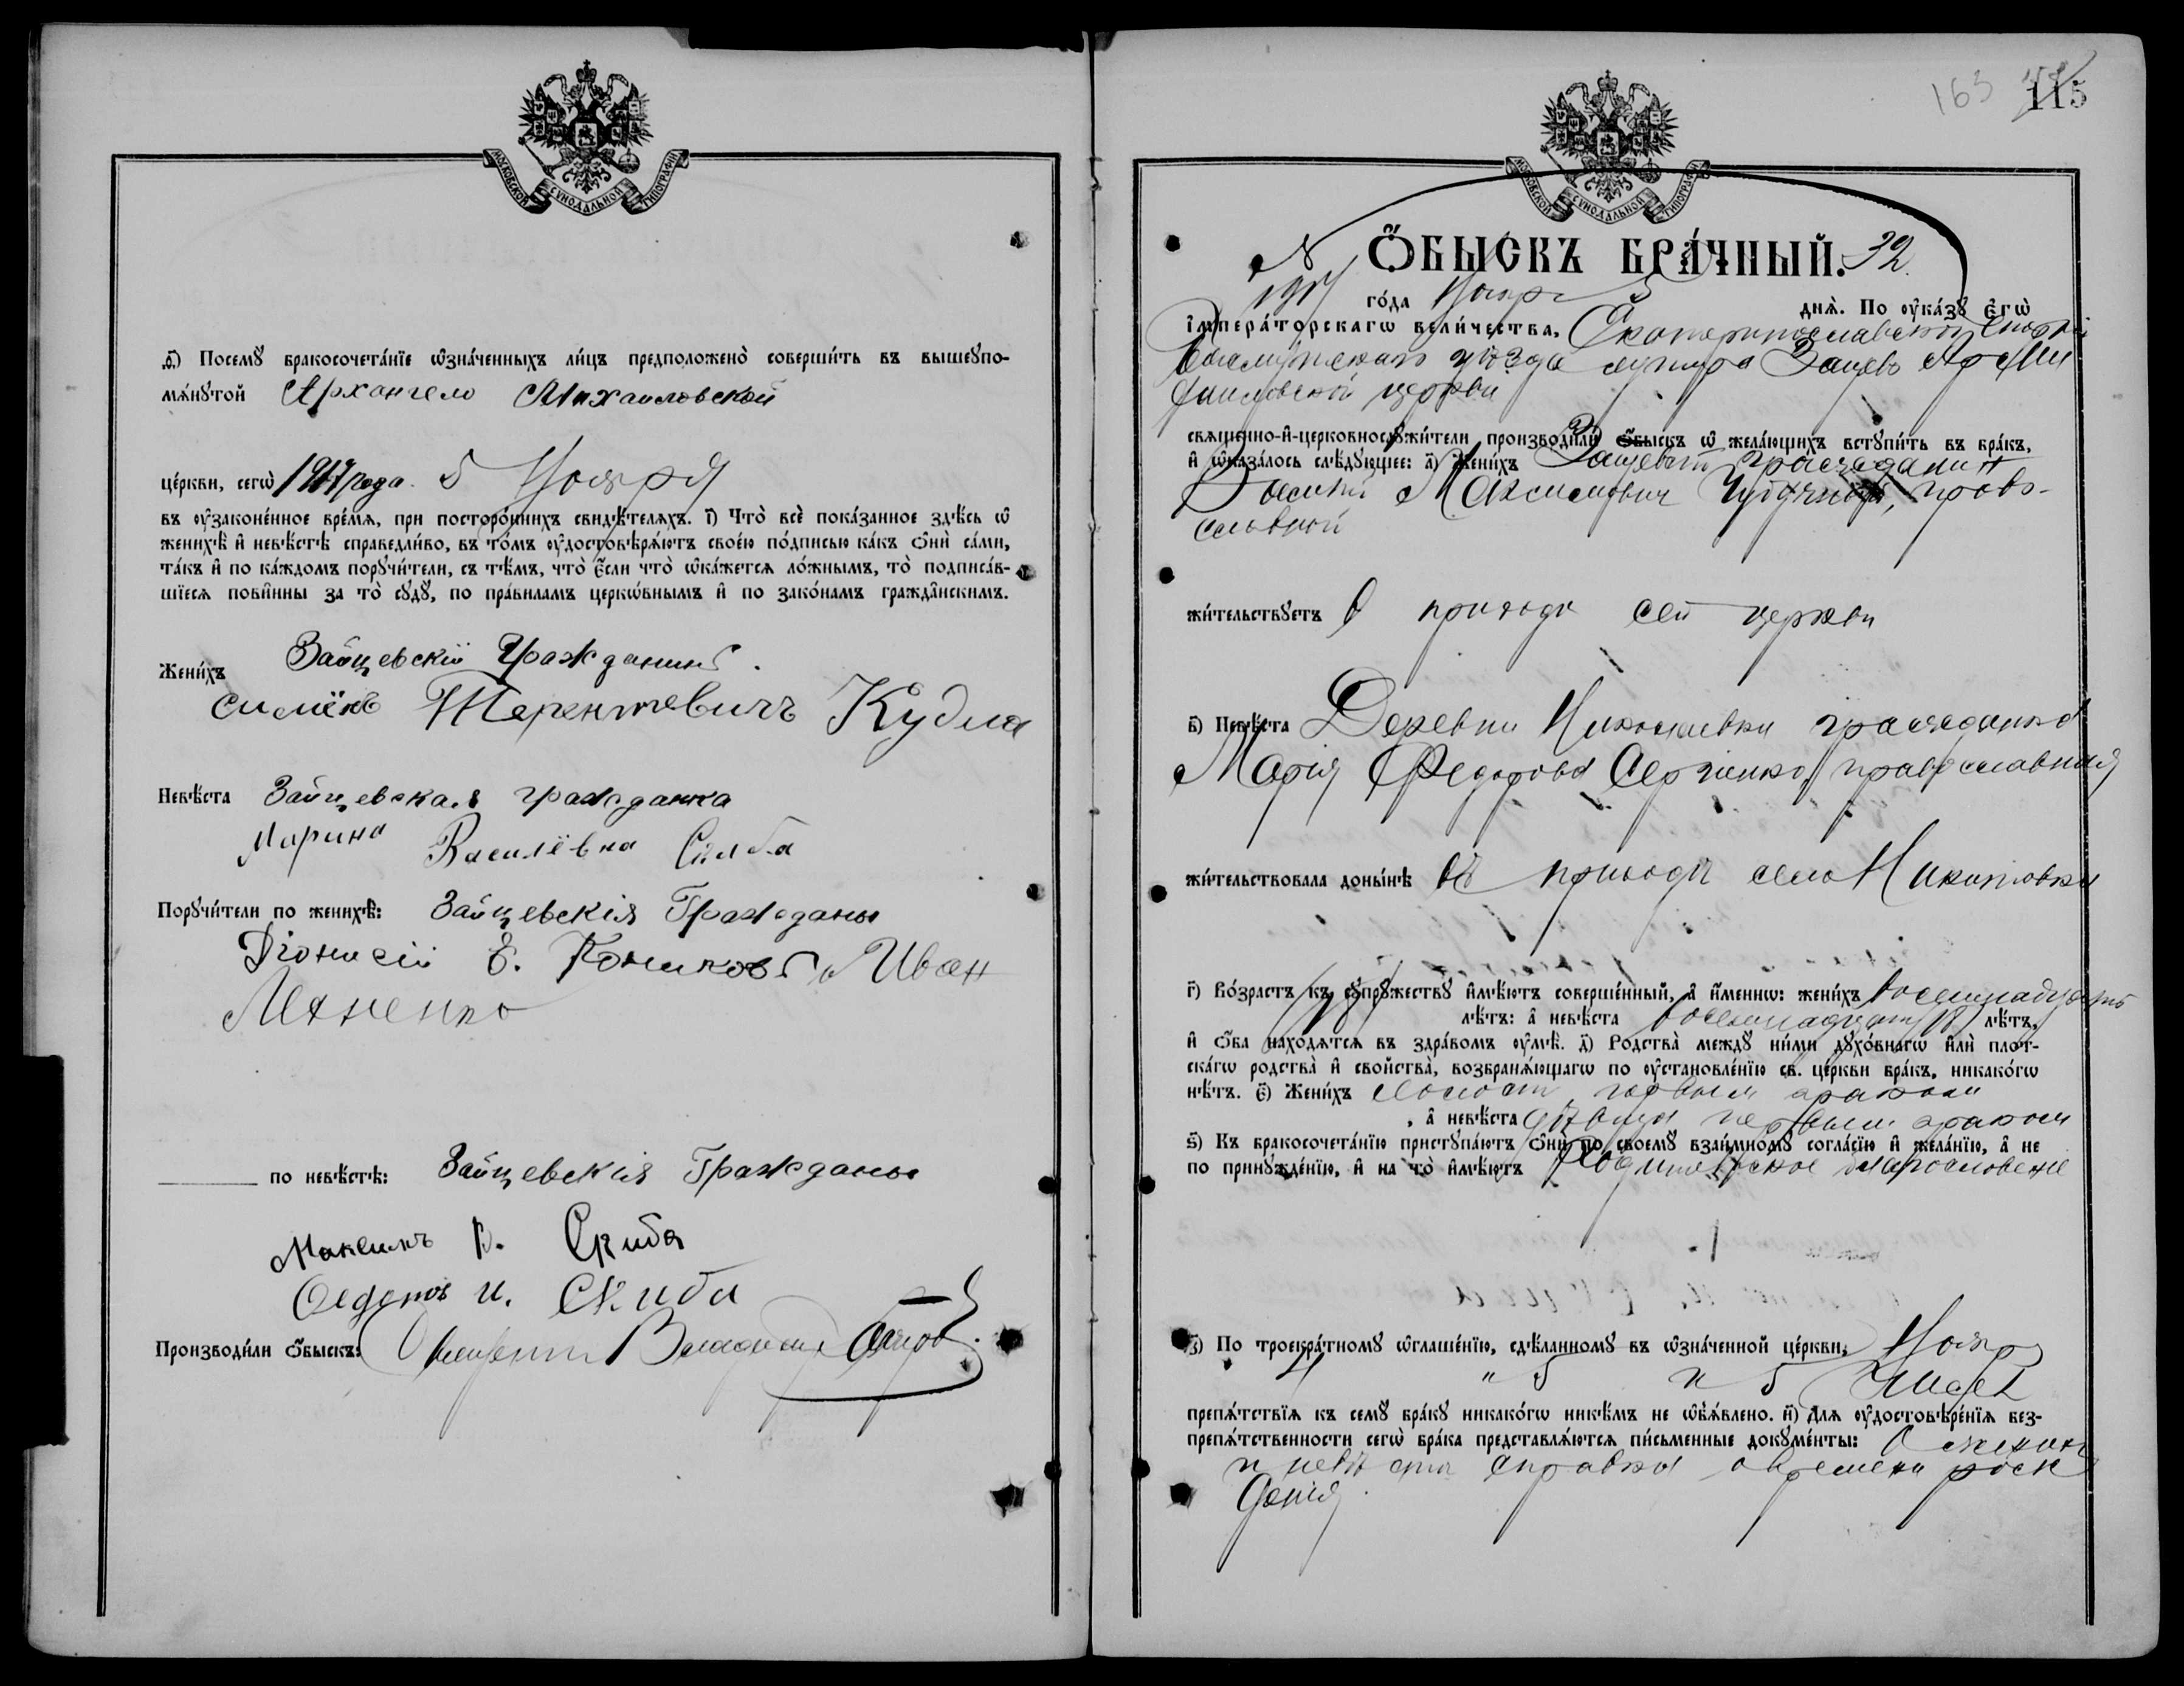 МОСКОВСКОЙ СѴНОДАЛЬНОЙ ТИПОГРАФІИ
д҃і) Посемꙋ бракосочета́нїе ѡ҆зна́ченныхъ ли́цъ предположено̀ соверши́ть въ вышеꙋпо-
мѧ́нꙋтой Архангело Михаиловской
це́ркви, сегѡ̀ 1917 года. 5 Ноября
въ ᲂу҆законе́нное вре́мѧ, при посторо́ннихъ свидѣ́телѧхъ. і҃) Что̀ всѐ пока́занное здѣ́сь ѡ҆
женихѣ̀ и҆ невѣ́стѣ справедли́во, въ то́мъ ᲂу҆достовѣрѧ́ютъ свое́ю по́дписью ка́къ ѻ҆нѝ са́ми,
та́къ и҆ по ка́ждомъ порꙋчи́тели, съ тѣ́мъ, что̀ є҆́сли что̀ ѡ҆ка́жетсѧ ло́жнымъ, то̀ подписа́в-
шїесѧ пови́нны за то̀ сꙋдꙋ̀, по пра́виламъ церкѡ́внымъ и҆ по зако́намъ гражда̑нскимъ.
Зайцевскій Гражданинъ.
Жени́хъ
Симёнъ Терентевичъ Кудла
Невѣ́ста Зайцевская гражданка
Марина Василёвна Скиба
Порꙋчи́тели по женихѣ̀: Зайцевскія Граждани
Діонисій Е. Коников Иван
по невѣ́стѣ: Зайцевскія Граждани
Максимъ В. Скиба
Федотъ И. Скиба
Производи́ли ѻ҆́быскъ: Священникъ Владимир
163 115
МОСКОВСКОЙ СѴНОДАЛЬНОЙ ТИПОГРАФІИ
№ Ѻ҆́БЫСКЪ БРА́ЧНЫЙ. 32.
1917 го́да Ноября 5 днѧ̀. По ᲂу҆ка́зꙋ є҆гѡ̀
і҆мпера́торскагѡ вели́чества, Екатеринославской Епархіи
Бахмутскаго уѣзда хутора Зайцево Ар Ми
хаиловской церкви
свѧще́нно-и҆-церковнослꙋжи́тели производи́ли ѻ҆́быскъ ѡ҆ жела́ющихъ встꙋпи́ть въ бра́къ,
и҆ ѡ҆каза́лось слѣ́дꙋющее: а҃) Жени́хъ Зайцевскій гражданин
Василій Максимович православной
жи́тельствꙋетъ в приходѣ сей церкви
в҃) Невѣ́ста Деревни Николаевки гражданка
Марія Федорова Сергіенко, православная
жи́тельствовала доны́нѣ въ приходѣ села Никитовки
г҃) Во́зрастъ къ сꙋпрꙋ́жествꙋ и҆мѣ́ютъ соверше́нный, а҆ и҆́меннѡ: жени́хъ восемнадцать
(18) лѣ́тъ: а҆ невѣ́ста восемнадцать (18) лѣ́тъ,
и҆ ѻ҆́ба нахо́дѧтсѧ въ здра́вомъ ᲂу҆мѣ̀. д҃) Родства̀ междꙋ̀ ни́ми дꙋхо́внагѡ и҆лѝ плот-
ска́гѡ родства̀ и҆ свойства̀, возбранѧ́ющагѡ по ᲂу҆становле́нїю св. це́ркви бра́къ, никако́гѡ
нѣ́тъ. є҃) Жени́хъ холост, первым браком
, а҆ невѣ́ста дѣвица первым браком
ѕ҃) Къ бракосочета́нїю пристꙋпа́ютъ ѻ҆нѝ по своемꙋ̀ взаи́мномꙋ согла́сїю и҆ жела́нїю, а҆ не
по принꙋжде́нїю, и҆ на то̀ и҆мѣ́ютъ Родительское благословеніе
з҃) По троекра́тномꙋ ѡ҆глаше́нїю, сдѣ́ланномꙋ въ ѡ҆зна́ченной це́ркви, Ноября
" 5 и 5 чиселъ
препѧ́тствїѧ къ семꙋ̀ бра́кꙋ никако́гѡ никѣ́мъ не ѡ҆б̾ѧ́влено. и҃) Длѧ ᲂу҆достовѣре́нїѧ без-
препѧ́тственности сегѡ̀ бра́ка представлѧ́ютсѧ пи́сьменные докꙋме́нты: О женихѣ
и невѣсте справка о времени рож
денія.